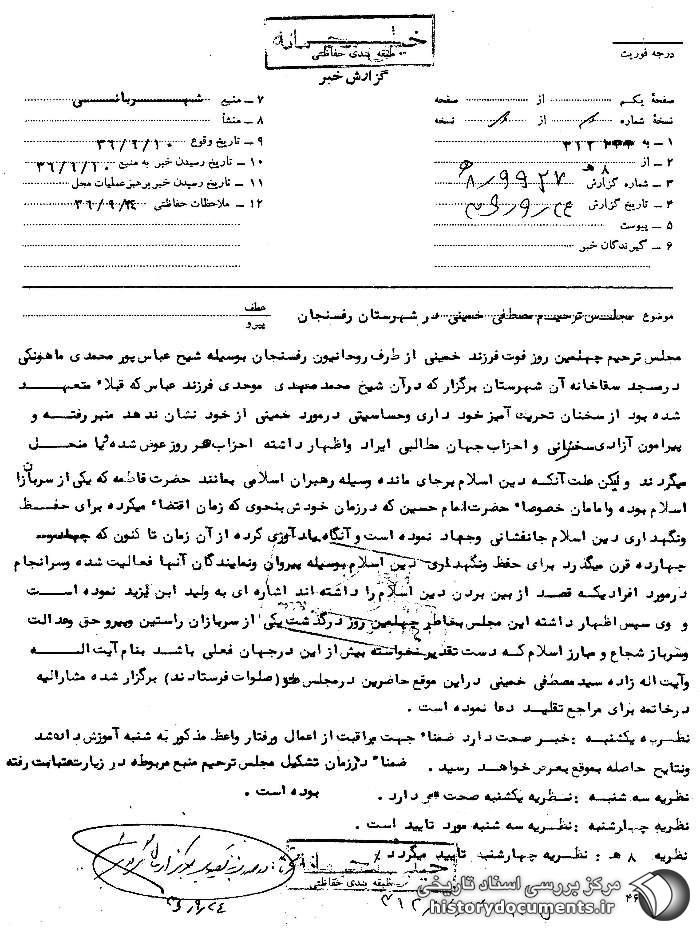 خیلی محرمانه
طبقه بندی حفاظتی
گزارش خبر
درجه فوریت
صفحهٔ یکم از صفحه
نسخهٔ شماره از نسخه
۱ – به ۳۱۲
۲ – از ۸ هـ
۳ – شماره گزارش ۸/۹۹۲۷ هـ
۴ – تاریخ گزارش ۳۶/۹/۲۴
۵ – پیوست
۶ – گیرندگان خبر
۷ – منبع شهربانی
۸ – منشأ
۹ – تاریخ وقوع ۳۶/۹/۱۰
۱۰ – تاریخ رسیدن خبر به منبع ۳۶/۹/۱۰
۱۱ – تاریخ رسیدن خبر برهبر عملیات محل
۱۲ – ملاحظات حفاظتی ۳۶/۹/۲۴
موضوع مجلس ترحیم مصطفی خمینی در شهرستان رفسنجان
عطف
پیرو
مجلس ترحیم چهلمین روز فوت فرزند خمینی از طرف روحانیون رفسنجان بوسیله شیخ عباس پور محمدی ماهونکی
درمسجد سقاخانه آن شهرستان برگزار که درآن شیخ محمد مهدی موحدی فرزند عباس که قبلاً متعهد
شده بود از سخنان تحریک آمیز خود داری وحساسیتی درمورد خمینی از خود نشان ندهد منبر رفته و
پیرامون آزادی سخنرانی و احزاب جهان مطالبی ایراد واظهار داشته احزاب هر روز عوض شده یا منحل
میگردند ولیکن علت آنکه دین اسلام برجای مانده وسیله رهبران اسلامی بمانند حضرت فاطمه که یکی از سربازان
اسلام بوده وامامان خصوصاً حضرت امام حسین که درزمان خودش بنحوی که زمان اقتضاء میکرده برای حفظ
ونگهداری دین اسلام جانفشانی وجهاد نموده است و آنگاه یادآوری کرده از آن زمان تا کنون که
چهارده قرن میگذرد برای حفظ ونگهداری دین اسلام بوسیله پیروان ونمایندگان آنها فعالیت شده وسرانجام
درمورد افرادیکه قصد از بین بردن دین اسلام را داشته اند اشاره ای به ولید ابن یزید نموده است
و وی سپس اظهار داشته این مجلس بخاطر چهلمین روز درگذشت یکی از سربازان راستین وپیرو حق وعدالت
وسرباز شجاع و مبارز اسلام که دست تقدیر نخواسته بیش از این درجهان فعلی باشد بنام آیت اله
وآیت اله زاده سید مصطفی خمینی دراین موقع حاضرین درمجلس (صلوات فرستادند) برگزار شده مشارالیه
درخاتمه برای مراجع تقلید دعا نموده است .
نظریه یکشنبه : خبر صحت دارد ضمناً جهت مراقبت از اعمال ورفتار واعظ مذکور به شنبه آموزش داده شد
ونتایج حاصله بموقع بعرض خواهد رسید . ضمناً درزمان تشکیل مجلس ترحیم منبع مربوطه در زیارت عتبات رفته
بوده است .
نظریه سه شنبه : نظریه یکشنبه صحت دارد .
نظریه چهارشنبه : نظریه سه شنبه مورد تایید است .
نظریه ۸ هـ : نظریه چهارشنبه تایید میگردد
خیلی محرمانه
طبقه بندی حفاظتی
۳۶/۹/۲۴
۳۱۲
مرکز بررسی اسناد تاریخی
historydocuments.ir